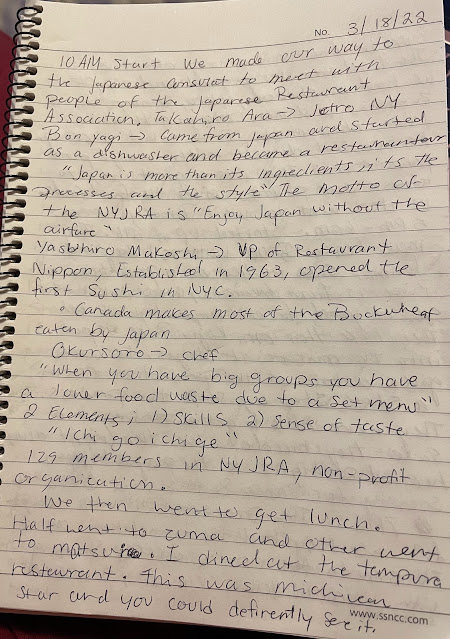 No. 3/18/22
10 AM Start We made our way to
the Japanese Consulat to meet with
people of the Japanese Restaurant
Association, Takahiro Ara → Jetro NY
Bon yagi → Came from Japan and started
as a dishwasher and became a restauranteur
"Japan is more than its ingredients, its the
processes and the style" The motto of
the NYJRA is "Enjoy Japan without the
airfare"
Yasbihiro Makoshi → VP of Restaurant
Nippon, Established in 1963, opened the
first Sushi in NYC.
• Canada makes most of the Buckwheat
eaten by Japan
Okursoro → chef
"When you have big groups you have
a lower food waste due to a set menu"
2 Elements; 1) Skills 2) Sense of taste
"Ichi go ichi ge"
129 members in NYJRA, non-profit
organication.
We then went to get lunch.
Half went to zuma and other went
to matsui. I dined at the tempura
restaurant. This was michiean
Star and you could defirently see it.
www.ssncc.com